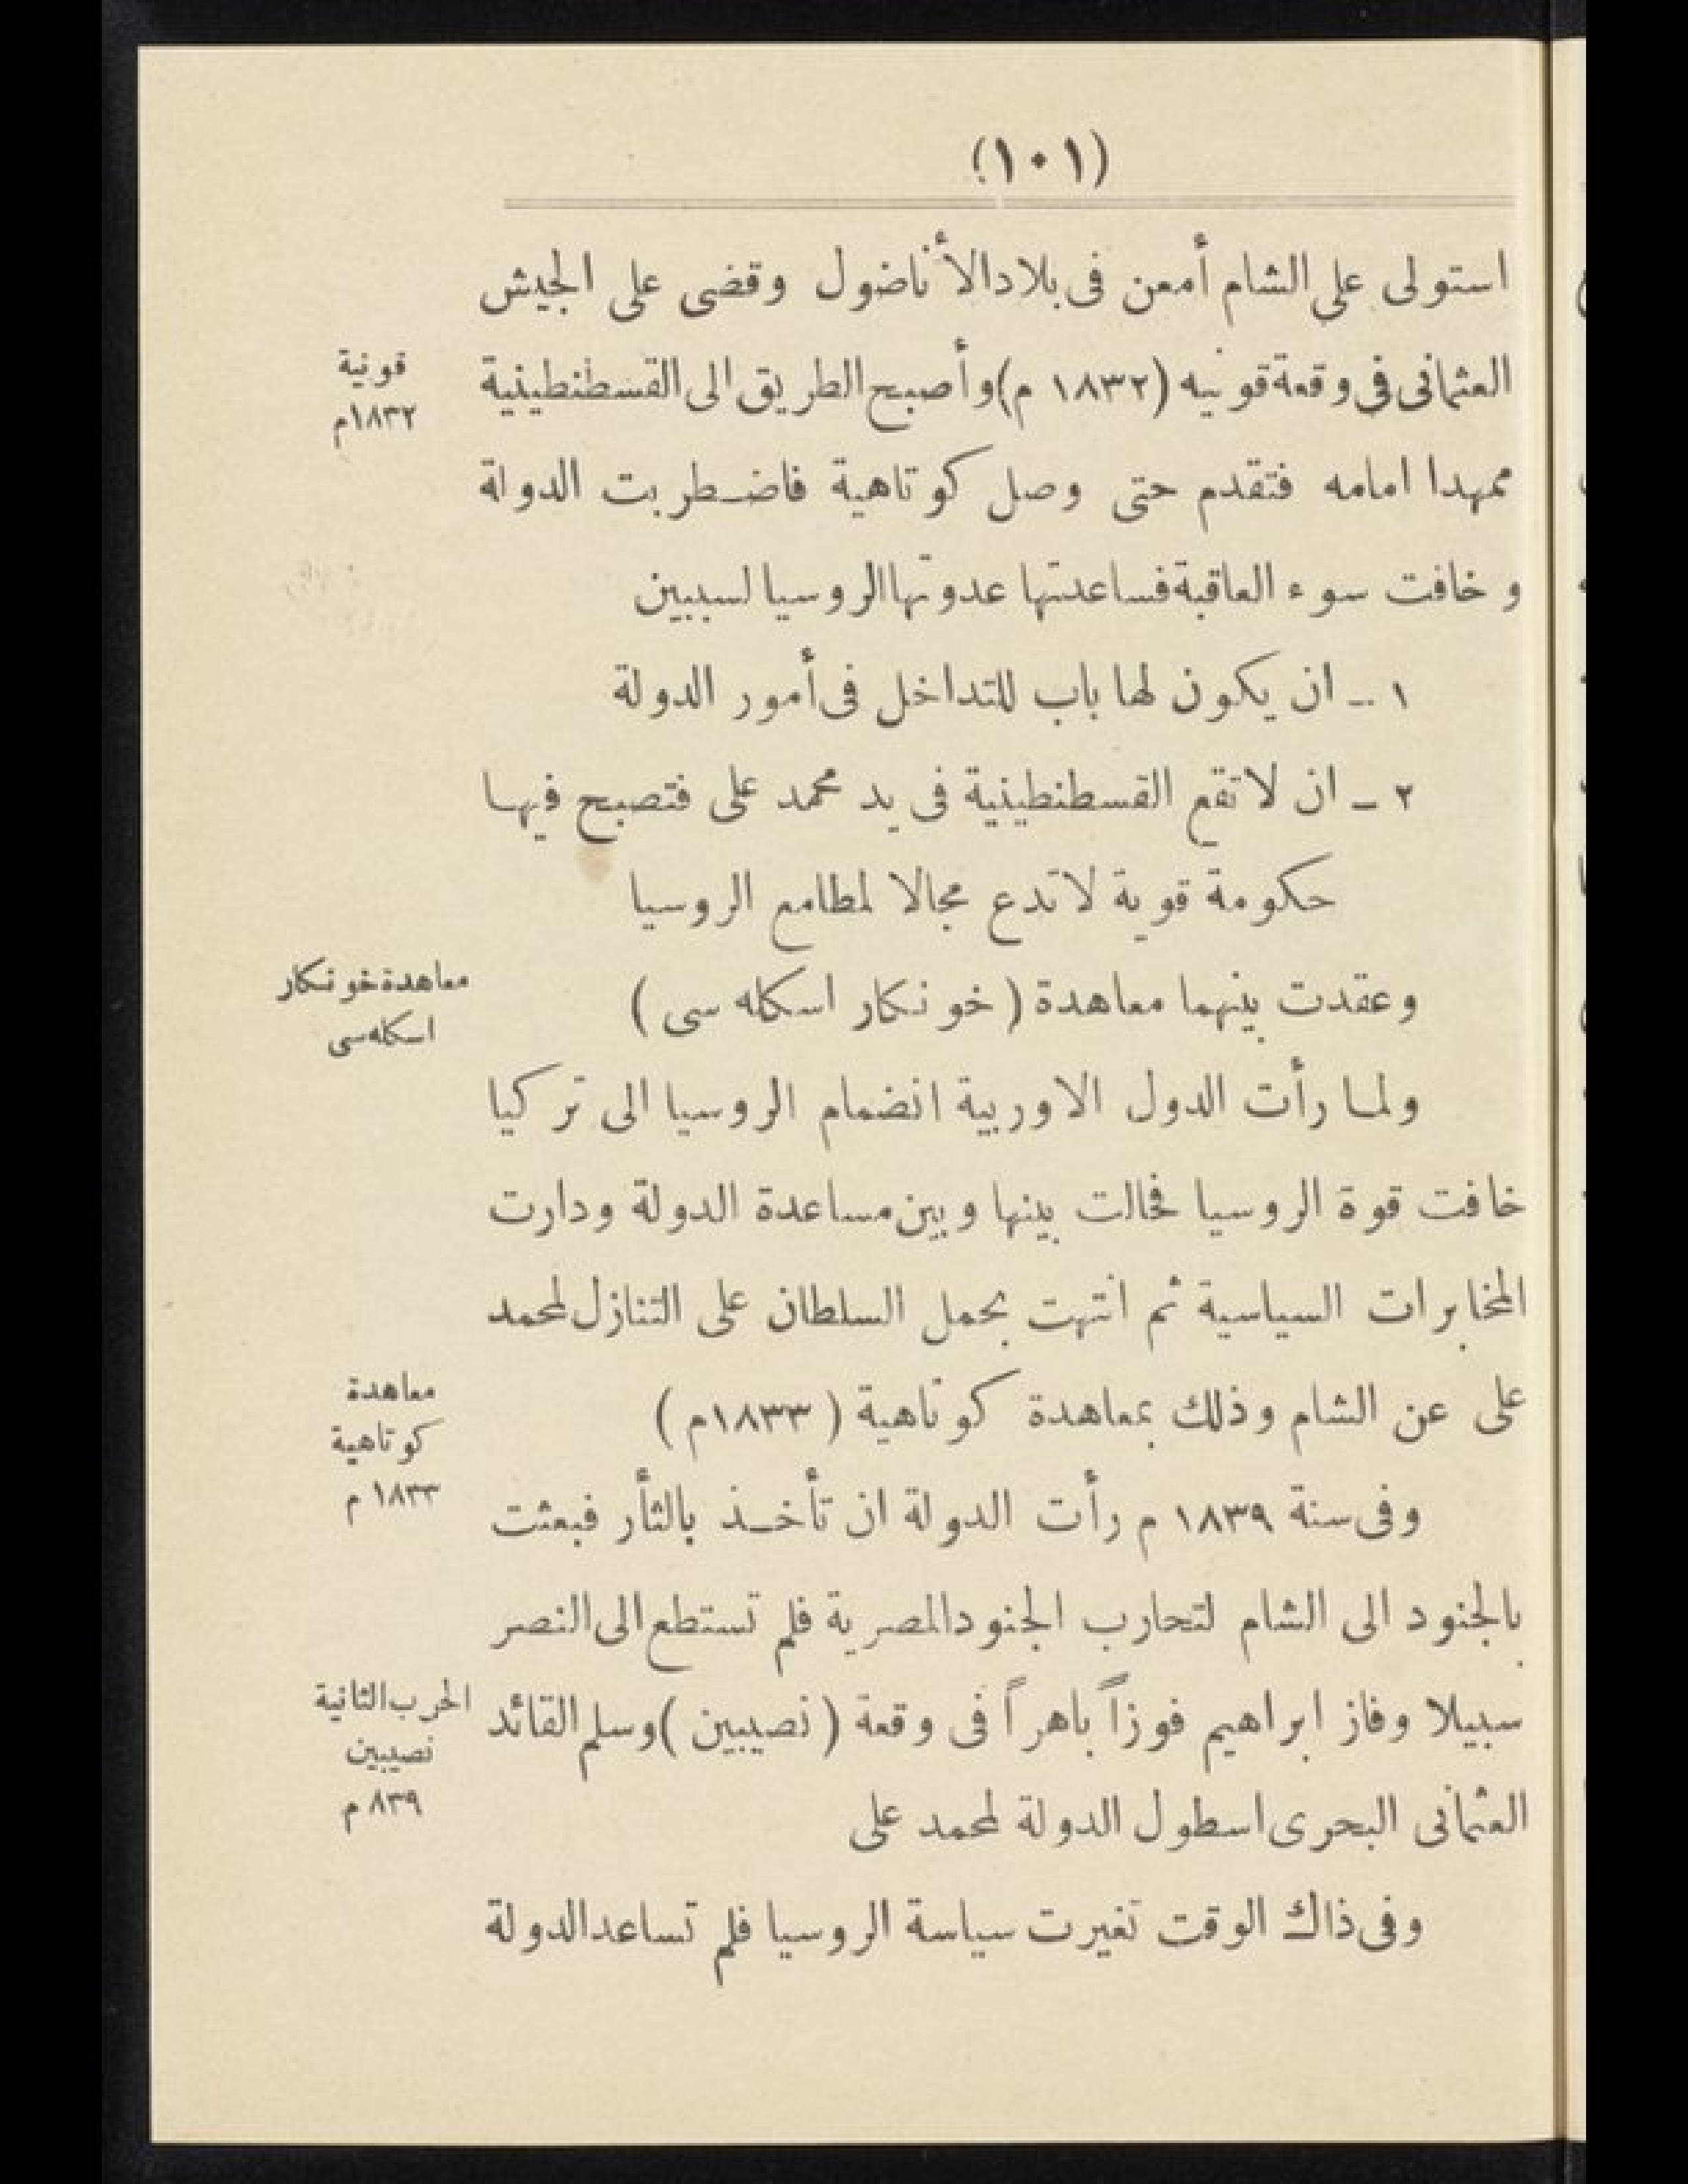 (١٠١)
استولى على الشام أمعن فى بلاد الأناضول وقضى على الجيش
العثمانى فى وقعة قونيه (١٨٣٢ م) وأصبح الطريق الى القسطنطينية
قونية
١٨٣٢م
ممهدا امامه فتقدم حتى وصل كوتاهية فاضطربت الدولة
وخافت سوء العاقبة فساعدتها عدوتها الروسيا لسببين
١ - ان يكون لها باب للتداخل فى أمور الدولة
٢ - ان لا تقع القسطنطينية فى يد محمد على فتصبح فيها
حكومة قوية لا تدع مجالا لمطامع الروسيا
وعقدت بينهما معاهدة ( خونكار اسكله سى )
معاهدة خونكار
اسكله سى
ولما رأت الدول الاوربية انضمام الروسيا الى تركيا
خافت قوة الروسيا فحالت بينها وبين مساعدة الدولة ودارت
المخابرات السياسية ثم انتهت بحمل السلطان على التنازل لمحمد
على عن الشام وذلك بمعاهدة كوتاهية ( ١٨٣٣م )
معاهدة
كوتاهية
١٨٣٣ م
وفى سنة ١٨٣٩ م رأت الدولة ان تأخذ بالثأر فبعثت
بالجنود الى الشام لتحارب الجنود المصرية فلم تستطع الى النصر
سبيلا وفاز ابراهيم فوزاً باهراً فى وقعة ( نصيبين ) وسلم القائد
الحرب الثانية
نصيبين
٨٣٩ م
العثمانى البحرى اسطول الدولة لمحمد على
وفى ذاك الوقت تغيرت سياسة الروسيا فلم تساعد الدولة